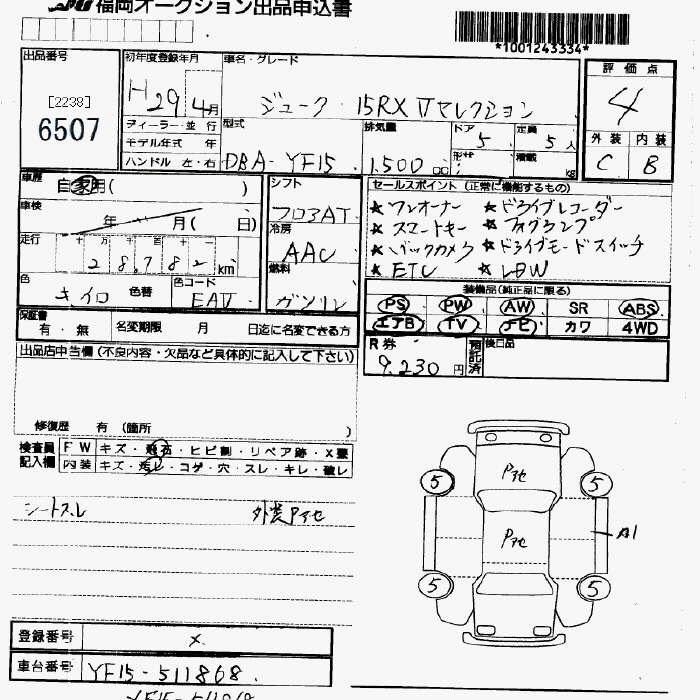 福岡オークション出品申込書
*1001243334*
出品番号
[2238]
6507
初年度登録年月
H29 4月
ディーラー・並行
モデル年式 年
ハンドル 左・右
車名・グレード
ジューク 15RX Vセレクション
型式
DBA-YF15
排気量
1,500 CC
ドア
5
形状
定員
5人
積載
KG
評価点
4
外装 内装
C B
車歴
自家用( )
車検
年 月( 日)
走行
十 万 千 百 十 一
28,782 km
色
キイロ 色替
色コード
EAV
シフト
フロアAT
冷房
AAC
燃料
ガソリン
セールスポイント(正常に機能するもの)
★ワンオーナー ★ドライブレコーダー
★スマートキー ★フォグランプ
★バックカメラ ★ドライブモードスイッチ
★ETC ★LDW
装備品(純正品に限る)
PS PW AW SR ABS
エアB TV ナビ カワ 4WD
保証書
有・無
名変期限 月 日迄に名変できる方
R券
9,230円
預託済
後日品
出品店申告欄(不良内容・欠品など具体的に記入して下さい)
修復歴 有(箇所 )
検査員記入欄
FW キズ・飛石・ヒビ割・リペア跡・X要
内装 キズ・汚レ・コゲ・穴・スレ・キレ・破レ
シートスレ 外装Pアセ
Pアセ
5 5
Pアセ
A1
5 5
登録番号 ×
車台番号 YF15-511868